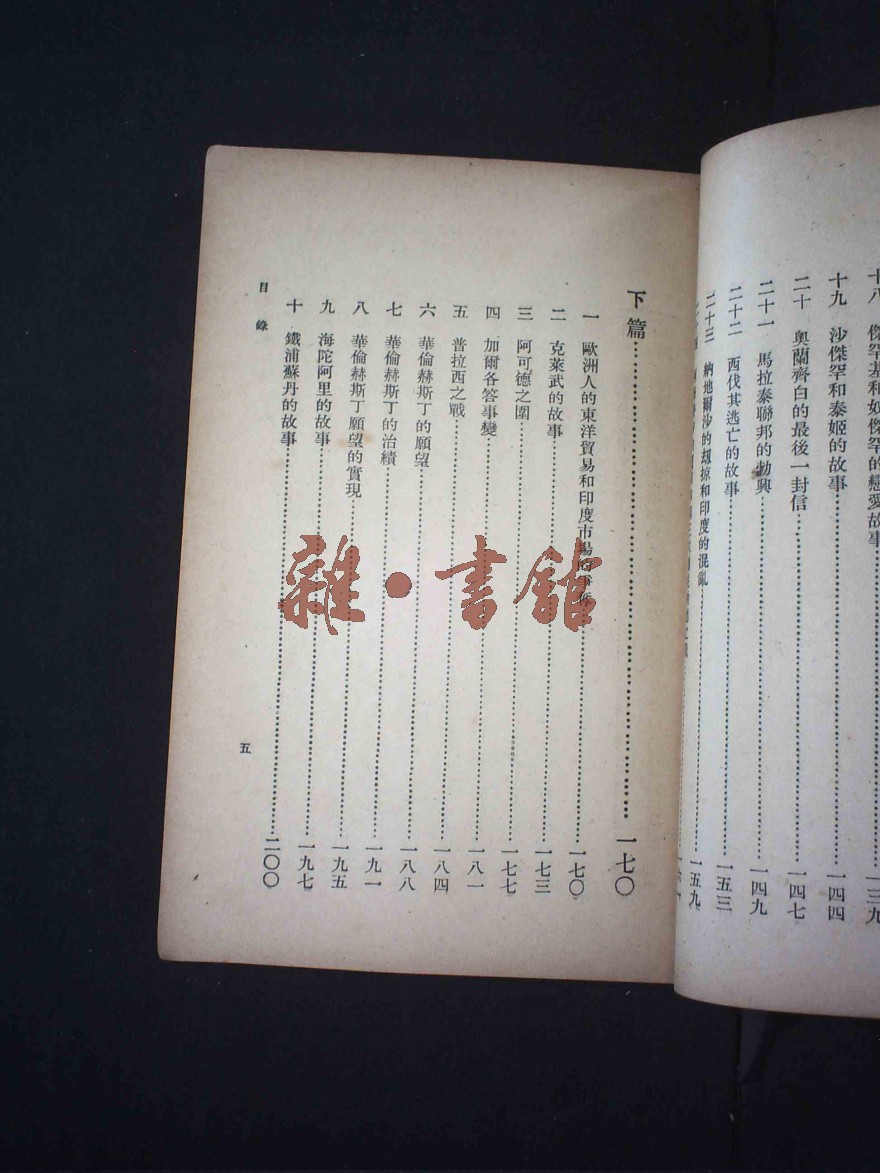 十八 傑罕基和奴傑罕的戀愛故事……一三九
十九 沙傑罕和泰姬的故事……一四四
二十 奧蘭齊白的最後一封信……一四七
二十一 馬拉泰聯邦的勃興……一四九
二十二 西伐其逃亡的故事……一五三
二十三 納地爾沙的刼掠和印度的混亂……一五九
下篇……一七〇
一 歐洲人的東洋貿易和印度市場的……一七〇
二 克萊武的故事……一七三
三 阿可德之圍……一七七
四 加爾各答事變……一八一
五 普拉西之戰……一八四
六 華倫赫斯丁的願望……一八八
七 華倫赫斯丁的治績……一九一
八 華倫赫斯丁願望的實現……一九五
九 海陀阿里的故事……一九七
十 鐵浦蘇丹的故事……二〇〇
目錄
五
雜·書館